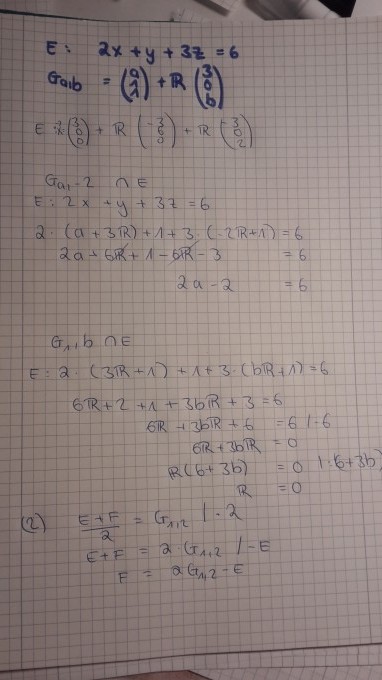 E: 2x + y + 3z = 6
Ga,b = (a 1 1) + ℝ (3 0 b)
E: x⃗ (3 0 0) + ℝ (-3 6 0) + ℝ (-3 0 2)
Ga,-2 ∩ E
E: 2x + y + 3z = 6
2·(a + 3ℝ) + 1 + 3·(-2ℝ+1) = 6
2a + 6ℝ + 1 - 6ℝ - 3 = 6
2a - 2 = 6
G1,b ∩ E
E: 2·(3ℝ+1) + 1 + 3·(bℝ+1) = 6
6ℝ + 2 + 1 + 3bℝ + 3 = 6
6ℝ + 3bℝ + 6 = 6 |-6
6ℝ + 3bℝ = 0
ℝ(6+3b) = 0 |:6+3b)
ℝ = 0
(2) E+F/2 = G1,2 | · 2
E+F = 2·G1,2 | -E
F = 2G1,2 - E